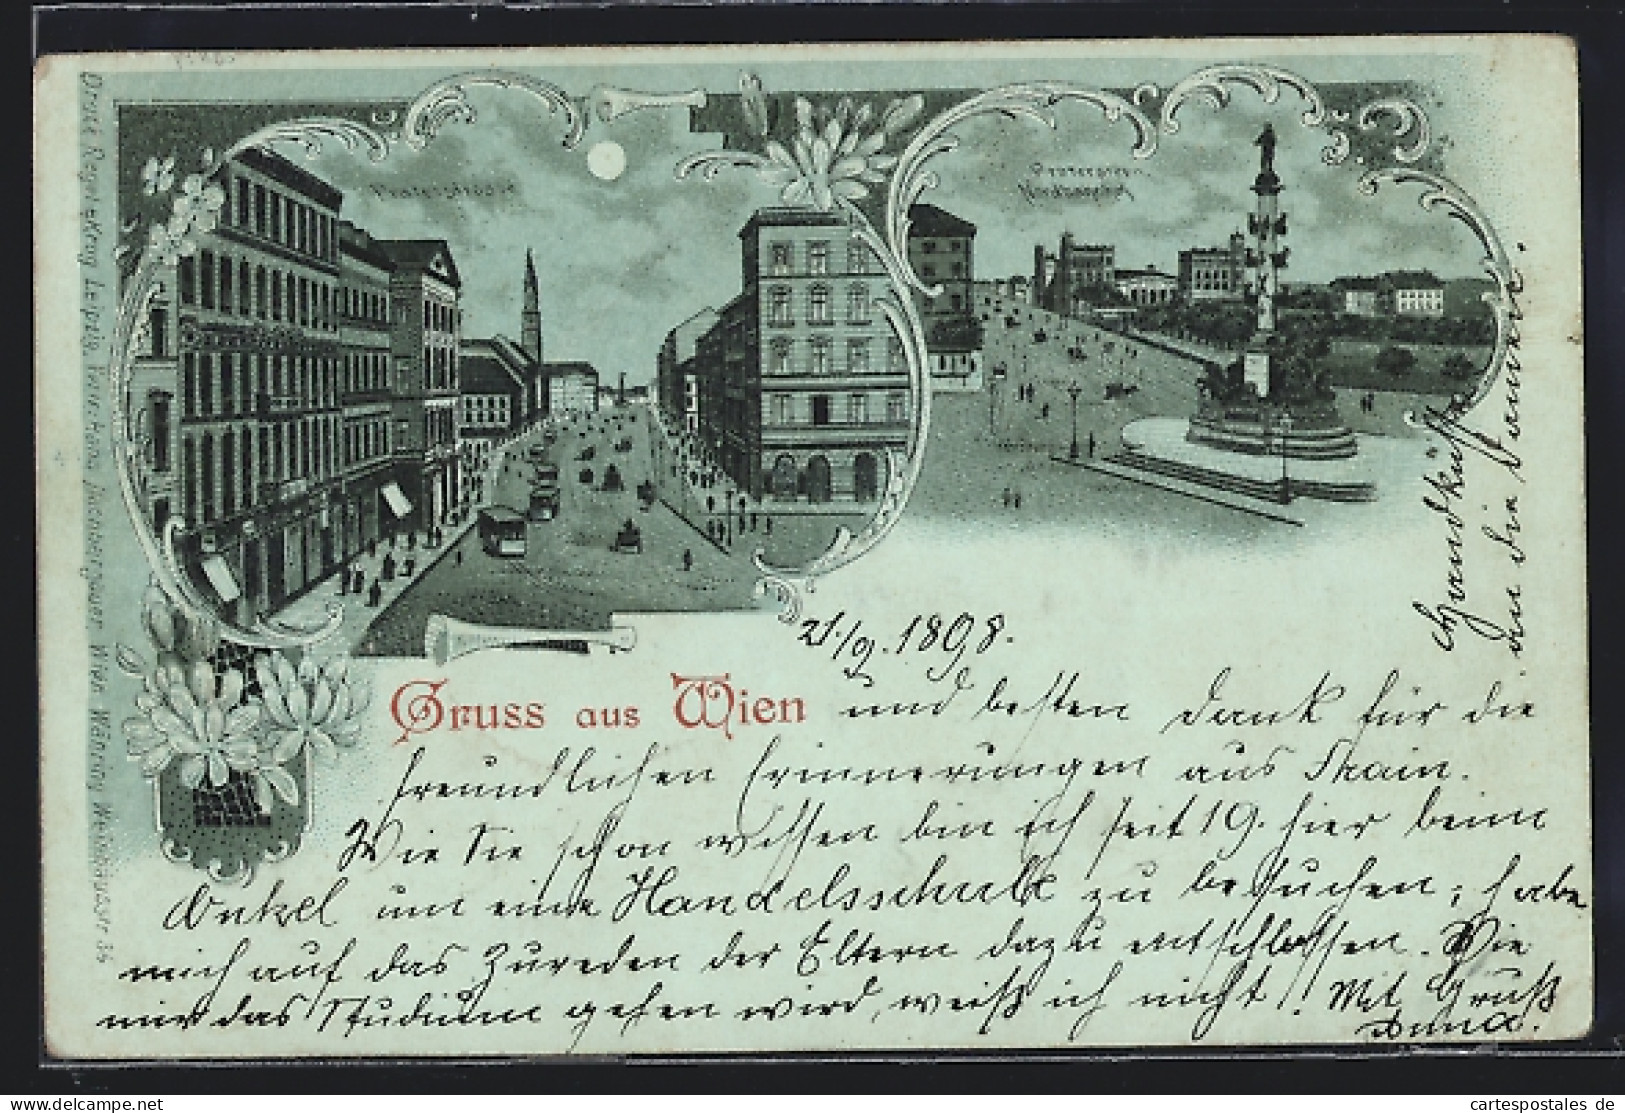 Praterstrasse
Praterstern.
Nordbahnhof
Druck Regel & Krug, Leipzig
Wien, Währing,
21./9. 1898.
Gruss aus Wien und besten Dank für die
freundlichen Erinnerungen aus Stain.
Wie Sie schon wissen bin ich seit 19. hier beim
Onkel um eine Handelsschule zu besuchen, habe
mich auf das Zureden der Eltern dazu entschlossen. Wie
mir das Studium gehen wird, weiß ich nicht! Mit Gruß
Anna.
Handküsse
an die Damen.
cartespostales de
Delcampe.net